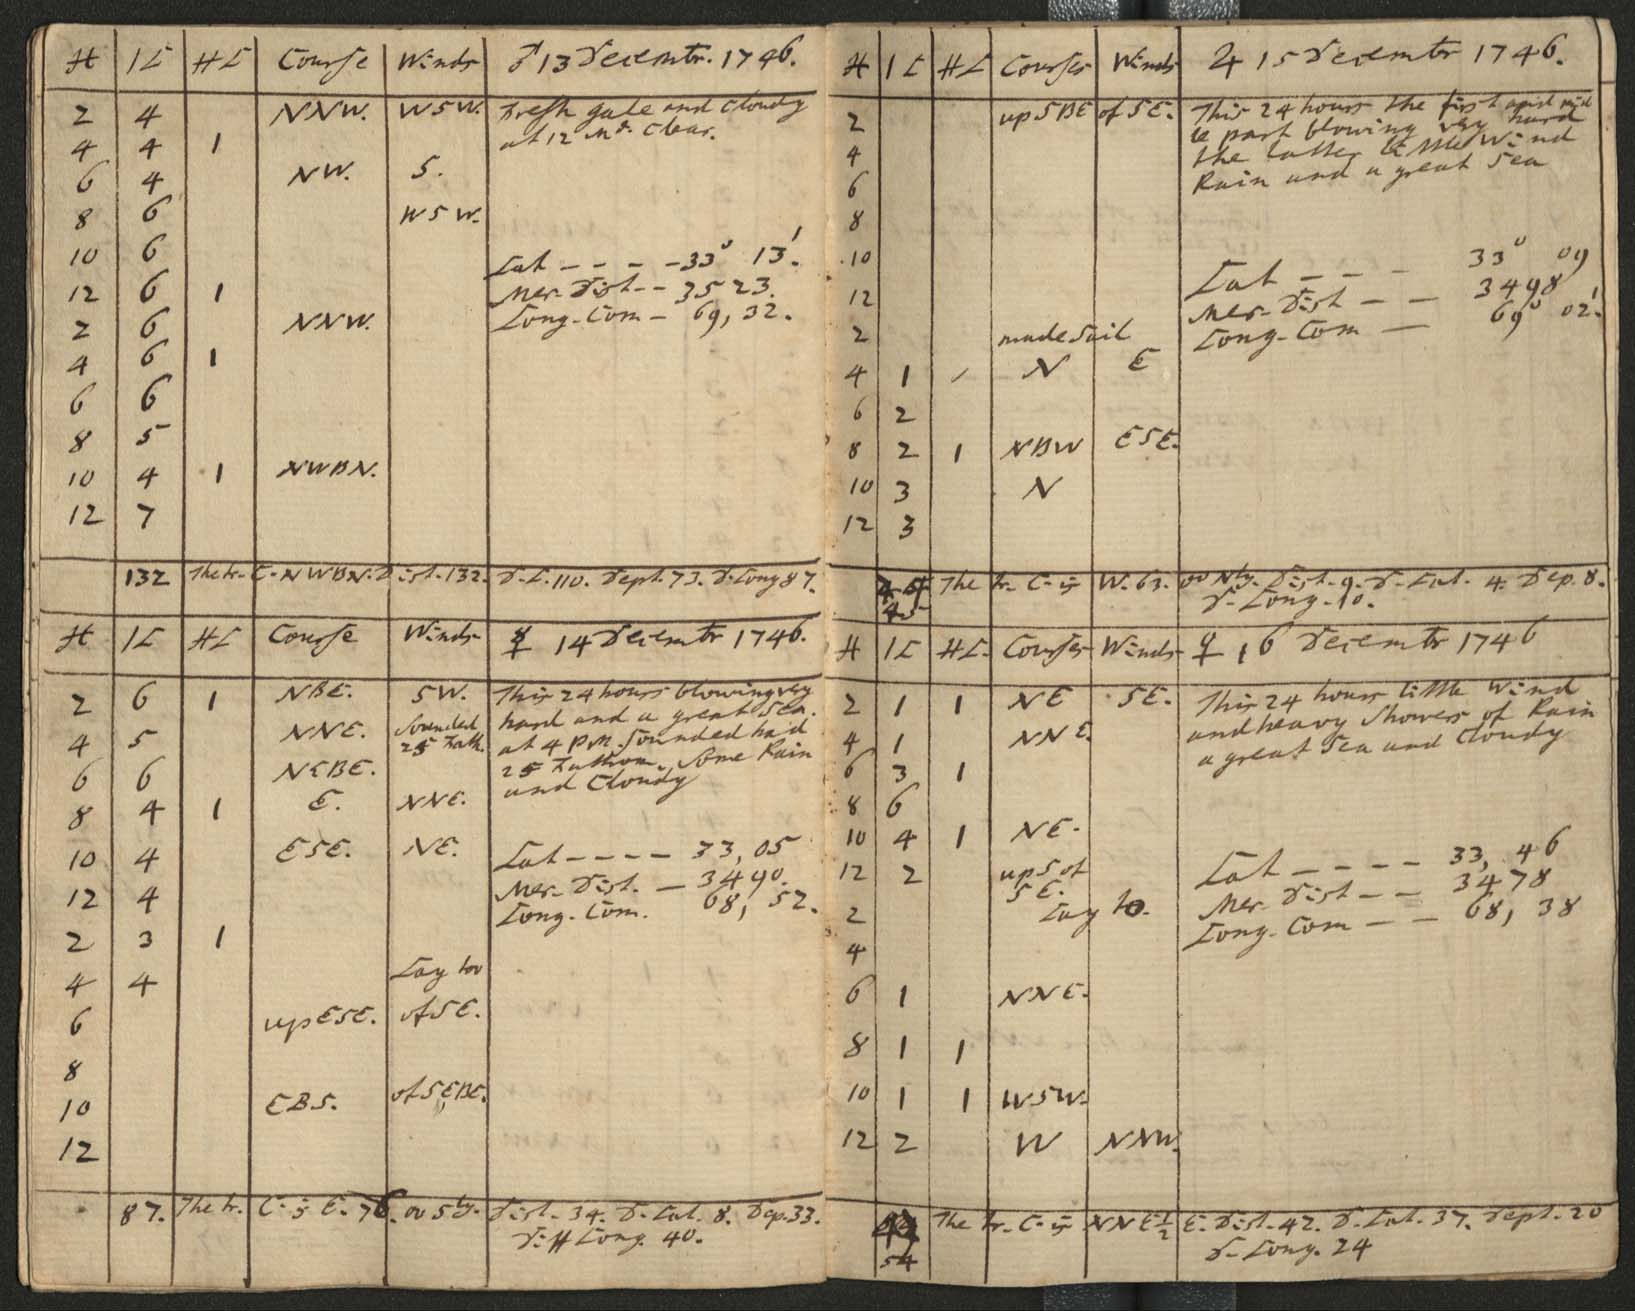 H K HK Course Winds ♂ 13 Decembr. 1746.
2 4 NNW. WSW. Fresh gale and Cloudy
4 4 1 at 12 Md. Clear.
6 4 NW. S.
8 6 WSW.
10 6 Lat - - - - 33° 13'.
12 6 1 Mer- Dist - - 3523.
2 6 NNW. Long- Com - 69, 32.
4 6 1
6 6
8 5
10 4 1 NWBN.
12 7
132 The tr- C- NWBN. Dist- 132. D- L. 110. Dept. 73. D- Long 87.
H K HK Course Winds ☿ 14 Decembr 1746.
2 6 1 NBE. SW. This 24 hours blowing very
NNE. Sounded hard and a great Sea.
4 5 25 Fath. at 4 P.M. Sounded had
6 6 NEBE. 25 Fathom. Some Rain
8 4 1 E. NNE. and Cloudy
10 4 ESE. NE. Lat - - - - 33, 05
12 4 Mer- Dist. - 3490.
2 3 1 Long- Com. 68, 52.
4 4 Lay too
6 up ESE. of SE.
8
10 EBS. of SEBE.
12
87. The tr. C- is E. 76. oo Sly. Dist- 34. D- Lat. 8. Dep. 33.
D- Long. 40.
H K HK Courses Winds ♃ 15 Decembr 1746.
2 up SBE of SE. This 24 hours the first and mid
le part blowing very hard
4 the latter little Wind
6 Rain and a great Sea
8
10 Lat - - - 33° 09
12 Mer- Dist - - 3498
2 made Sail Long- Com - 69° 02'.
4 1 N E
6 2
8 2 1 NBW ESE.
10 3 N
12 3
45 The tr- C- is W. 63. oo Nly. Dist- 9. D- Lat. 4. Dep. 8.
D- Long- 10.
H K HK- Courses Winds ♀ 16 Decembr 1746
2 1 1 NE SE. This 24 hours little Wind
4 1 NNE. and heavy Showers of Rain
6 3 1 a great Sea and Cloudy
8 6
10 4 1 NE. Lat - - - - 33, 46
12 2 up S of Mer- Dist - - 3478
SE.
2 Lay to. Long- Com - - 68, 38
4
6 1 NNE.
8 1 1
10 1 1 WSW.
12 2 W NNW.
54 The tr- C- is NNE ½ E. Dist- 42. D- Lat- 37. Dept- 20
D- Long. 24